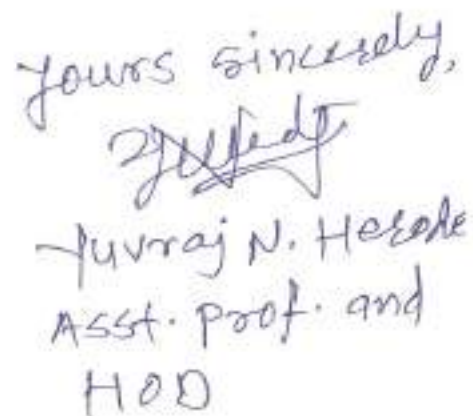 Yours sincerely,
Yuvraj N. Herode
Asst. prof. and
HOD